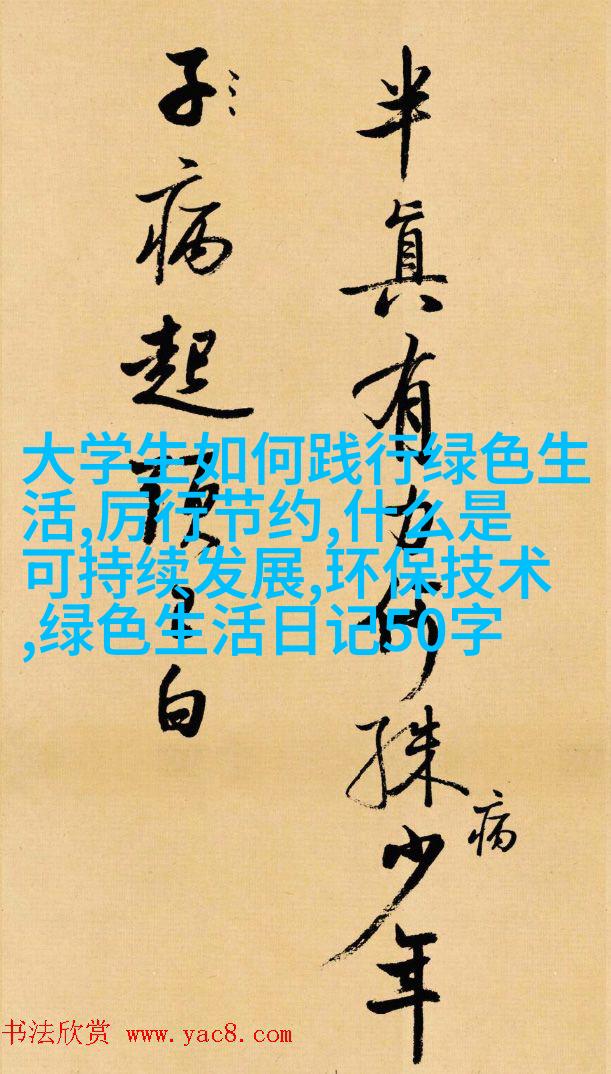 半真有何殊少年
病
子病起白
大学生如何践行绿色生
活,厉行节约,什么是
可持续发展,环保技术
,绿色生活日记50字
书法欣赏 www.yac8.com